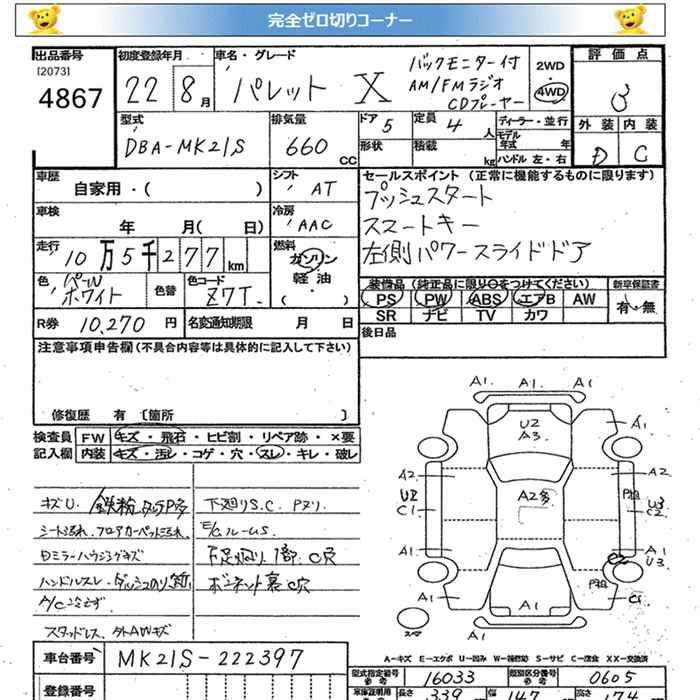 完全ゼロ切りコーナー
出品番号 初度登録年月 車名・グレード 評価点
[2073]
4867
22 8月 パレット X
バックモニター付
AM/FMラジオ
CDプレーヤー
2WD
4WD
B
型式 排気量 ドア 5 定員 4人 ディーラー・並行 外装 内装
DBA-MK21S 660 CC 形状 積載 kg モデル年式 年 D C
ハンドル左・右
車歴 シフト セールスポイント(正常に機能するものに限ります)
自家用・( ) AT プッシュスタート
車検 冷房 スマートキー
年 月( 日) AAC 左側パワースライドドア
走行 10万5千277km 燃料 ガソリン
軽油
・( )
装備品(純正品に限り○をつけてください) 新車保証書
色 パール 色替 色コード Z7T PS PW ABS エアB AW 有・無
ホワイト SR ナビ TV カワ
R券 10,270円 名変通知期限 月 日 後日品
注意事項申告欄(不具合内容等は具体的に記入して下さい)
修復歴 有〔箇所 〕
検査員 FW キズ・飛石・ヒビ割・リペア跡・×要
記入欄 内装 キズ・汚レ・コゲ・穴・スレ・キレ・破レ
キズU. 鉄粉
下廻りS.C.
シート汚れ、フロアカーペット汚れ
ハンドルスレ
ボンネット裏C穴
スタッドレス
A1. A1. A1
U2
A3
A1
A2 A2
U2
C1
A2多
U3
C2
A1 A1
U3
C2
A1 A1 A1 C1
スマ
A-キズ E-エクボ U-凹み W-補修跡 S-サビ C-腐食 XX-交換済
車台番号 MK21S-222397
型式指定番号 16033 類別区分番号 0605
参考 参考
登録番号 長さ 339 幅 147 高さ 174